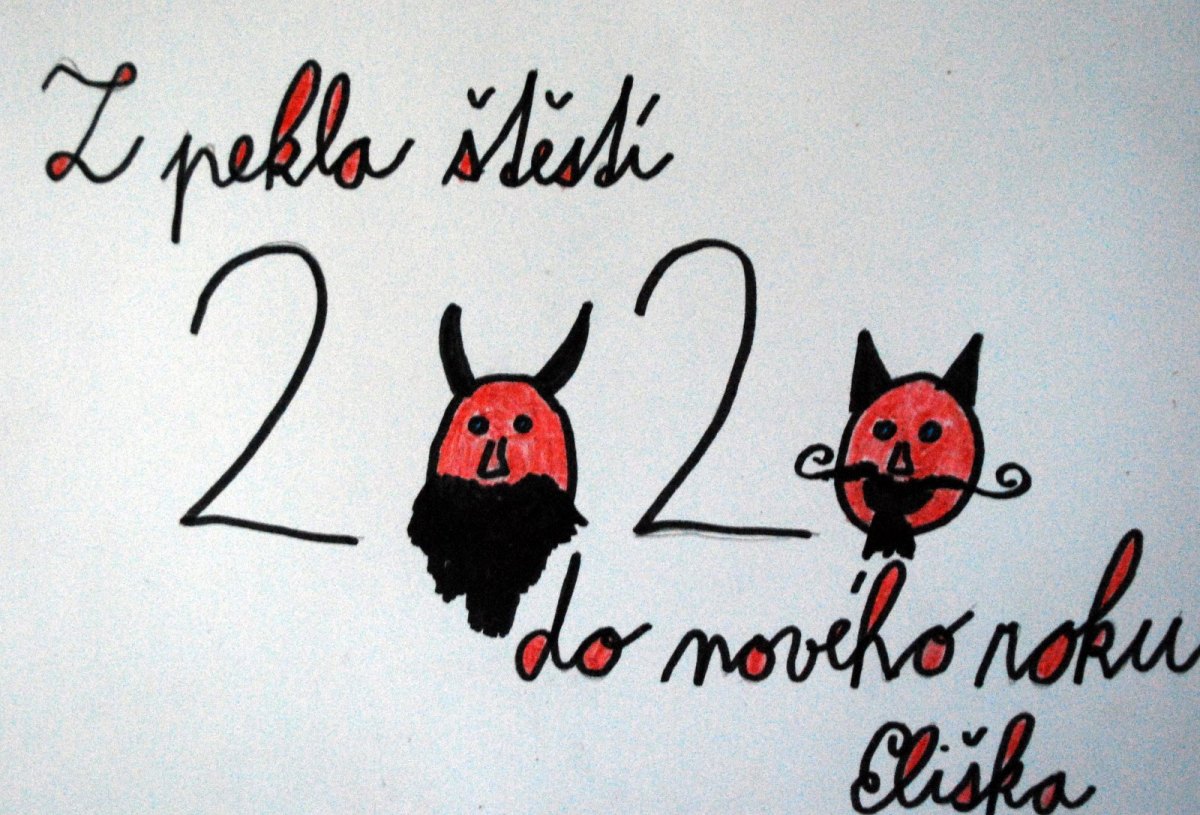 Z pekla štěstí
2020
do nového roku
Eliška